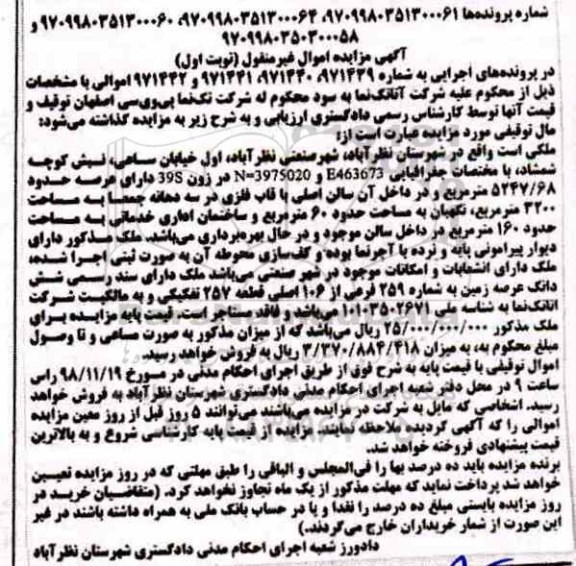 شماره پرونده‌ها ۹۷۰۹۹۸۰۳۵۱۳۰۰۰۶۱، ۹۷۰۹۹۸۰۳۵۱۳۰۰۰۶۴، ۹۷۰۹۹۸۰۳۵۱۳۰۰۰۶۰ و
۹۷۰۹۹۸۰۳۵۰۳۰۰۰۵۸
آگهی مزایده اموال غیرمنقول (نوبت اول)
در پرونده‌های اجرایی به شماره ۹۷۱۴۳۹، ۹۷۱۴۴۰، ۹۷۱۴۴۱ و ۹۷۱۴۴۲ اموالی با مشخصات
ذیل از محکوم علیه شرکت آتانک‌نما به سود محکوم له شرکت تک‌نما پی‌وی‌سی اصفهان توقیف و
قیمت آنها توسط کارشناس رسمی دادگستری ارزیابی و به شرح زیر به مزایده گذاشته می‌شود:
مال توقیفی مورد مزایده عبارت است از:
ملکی است واقع در شهرستان نظرآباد، شهرصنعتی نظرآباد، اول خیابان ساحی، نبش کوچه
شمشاد، با مختصات جغرافیایی E463673 و N=3975020 در زون 39S دارای عرصه حدود
۵۲۴۷/۶۸ مترمربع و در داخل آن سالن اصلی با قاب فلزی در سه دهانه جمعا به مساحت
۳۲۰۰ مترمربع، نگهبان به مساحت حدود ۶۰ مترمربع و ساختمان اداری خدماتی به مساحت
حدود ۱۶۰ مترمربع در داخل سالن موجود و در حال بهره‌برداری می‌باشد. ملک مذکور دارای
دیوار پیرامونی پایه و نرده با آجرنما بوده و کف‌سازی محوطه آن به صورت بتنی اجرا شده،
ملک دارای انشعابات و امکانات موجود در شهر صنعتی می‌باشد ملک دارای سند رسمی شش
دانگ عرصه زمین به شماره ۲۵۹ فرعی از ۱۰۶ اصلی قطعه ۲۵۷ تفکیکی و به مالکیت شرکت
اتانک‌نما به شناسه ملی ۱۰۱۰۳۵۰۲۶۷۱ می‌باشد و فاقد مستاجر است. قیمت پایه مزایده برای
ملک مذکور ۲۵/۰۰۰/۰۰۰/۰۰۰ ریال می‌باشد که از میزان مذکور به صورت مساحی و تا وصول
مبلغ محکوم به، به میزان ۳/۳۷۰/۸۸۴/۴۱۸ ریال به فروش خواهد رسید.
اموال توقیفی با قیمت پایه به شرح فوق از طریق اجرای احکام مدنی در مورخ ۹۸/۱۱/۱۹ راس
ساعت ۹ در محل دفتر شعبه اجرای احکام مدنی دادگستری شهرستان نظرآباد به فروش خواهد
رسید. اشخاصی که مایل به شرکت در مزایده می‌باشند می‌توانند ۵ روز قبل از روز معین مزایده
اموالی را که آگهی گردیده ملاحظه نمایند. مزایده از قیمت پایه کارشناسی شروع و به بالاترین
قیمت پیشنهادی فروخته خواهد شد.
برنده مزایده باید ده درصد بها را فی‌المجلس و الباقی را طبق مهلتی که در روز مزایده تعیین
خواهد شد پرداخت نماید که مهلت مذکور از یک ماه تجاوز نخواهد کرد. (متقاضیان خرید در
روز مزایده بایستی مبلغ ده درصد را نقدا و یا در حساب بانک ملی به همراه داشته باشند در غیر
این صورت از شمار خریداران خارج می‌گردند.)
دادورز شعبه اجرای احکام مدنی دادگستری شهرستان نظرآباد